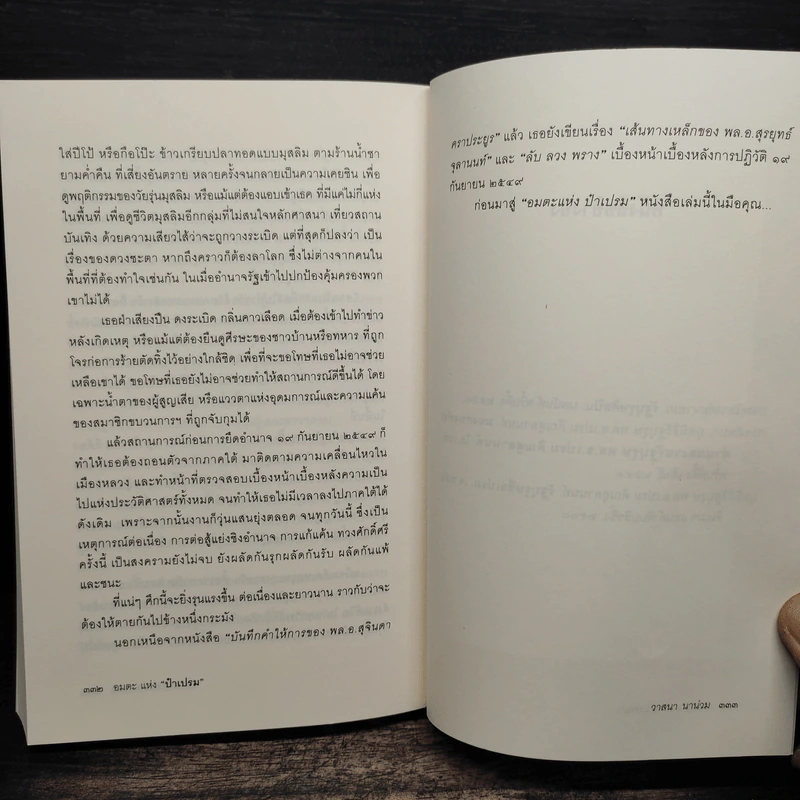 ใส่ปีโป้ หรือกือโป๊ะ ข้าวเกรียบปลาทอดแบบมุสลิม ตามร้านน้ำชา
ยามค่ำคืน ที่เสี่ยงอันตราย หลายครั้งจนกลายเป็นความเคยชิน เพื่อ
ดูพฤติกรรมของวัยรุ่นมุสลิม หรือแม้แต่ต้องแอบเข้าเธค ที่มีแค่ไม่กี่แห่ง
ในพื้นที่ เพื่อดูชีวิตมุสลิมอีกกลุ่มที่ไม่สนใจหลักศาสนา เที่ยวสถาน
บันเทิง ด้วยความเสียวไส้ว่าจะถูกวางระเบิด แต่ที่สุดก็ปลงว่า เป็น
เรื่องของดวงชะตา หากถึงคราวก็ต้องลาโลก ซึ่งไม่ต่างจากคนใน
พื้นที่ที่ต้องทำใจเช่นกัน ในเมื่ออำนาจรัฐเข้าไปปกป้องคุ้มครองพวก
เขาไม่ได้
เธอฝ่าเสียงปืน ดงระเบิด กลิ่นคาวเลือด เมื่อต้องเข้าไปทำข่าว
หลังเกิดเหตุ หรือแม้แต่ต้องยืนดูศีรษะของชาวบ้านหรือทหาร ที่ถูก
โจรก่อการร้ายตัดทิ้งไว้อย่างใกล้ชิด เพื่อที่จะขอโทษที่เธอไม่อาจช่วย
เหลือเขาได้ ขอโทษที่เธอยังไม่อาจช่วยทำให้สถานการณ์ดีขึ้นได้ โดย
เฉพาะน้ำตาของผู้สูญเสีย หรือแววตาแห่งอุดมการณ์และความแค้น
ของสมาชิกขบวนการฯ ที่ถูกจับกุมได้
แล้วสถานการณ์ก่อนการยึดอำนาจ ๑๙ กันยายน ๒๕๔๙ ก็
ทำให้เธอต้องถอนตัวจากภาคใต้ มาติดตามความเคลื่อนไหวใน
เมืองหลวง และทำหน้าที่ตรวจสอบเบื้องหน้าเบื้องหลังความเป็น
ไปแห่งประวัติศาสตร์ทั้งหมด จนทำให้เธอไม่มีเวลาลงไปภาคใต้ได้
ดังเดิม เพราะจากนั้นงานก็วุ่นแสนยุ่งตลอด จนทุกวันนี้ ซึ่งเป็น
เหตุการณ์ต่อเนื่อง การต่อสู้แย่งชิงอำนาจ การแก้แค้น ทวงศักดิ์ศรี
ครั้งนี้ เป็นสงครามยังไม่จบ ยังผลัดกันรุกผลัดกันรับ ผลัดกันแพ้
และชนะ
ที่แน่ๆ ศึกนี้จะยิ่งรุนแรงขึ้น ต่อเนื่องและยาวนาน ราวกับว่าจะ
ต้องให้ตายกันไปข้างหนึ่งกระมัง
นอกเหนือจากหนังสือ "บันทึกคำให้การของ พล.อ.สุจินดา
๓๓๒ อมตะ แห่ง "ป๋าเปรม"
คราประยูร" แล้ว เธอยังเขียนเรื่อง "เส้นทางเหล็กของ พล.อ.สุรยุทธ์
จุลานนท์" และ "ลับ ลวง พราง" เบื้องหน้าเบื้องหลังการปฏิวัติ ๑๙
กันยายน ๒๕๔๙
ก่อนมาสู่ "อมตะแห่ง ป๋าเปรม" หนังสือเล่มนี้ในมือคุณ...
วาสนา นาน่วม ๓๓๓